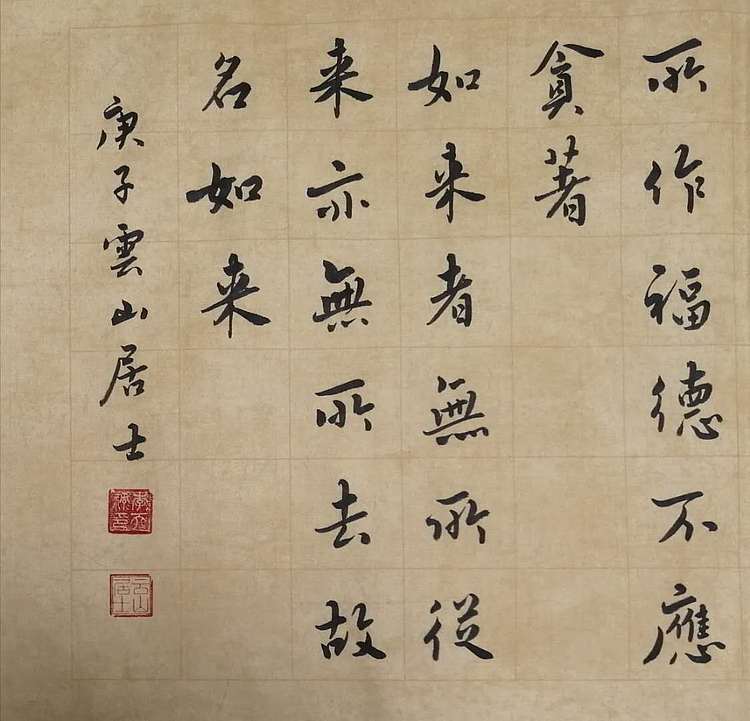 所作福德不應
貪著
如来者無所從
来亦無所去故
名如来
庚子雲山居士